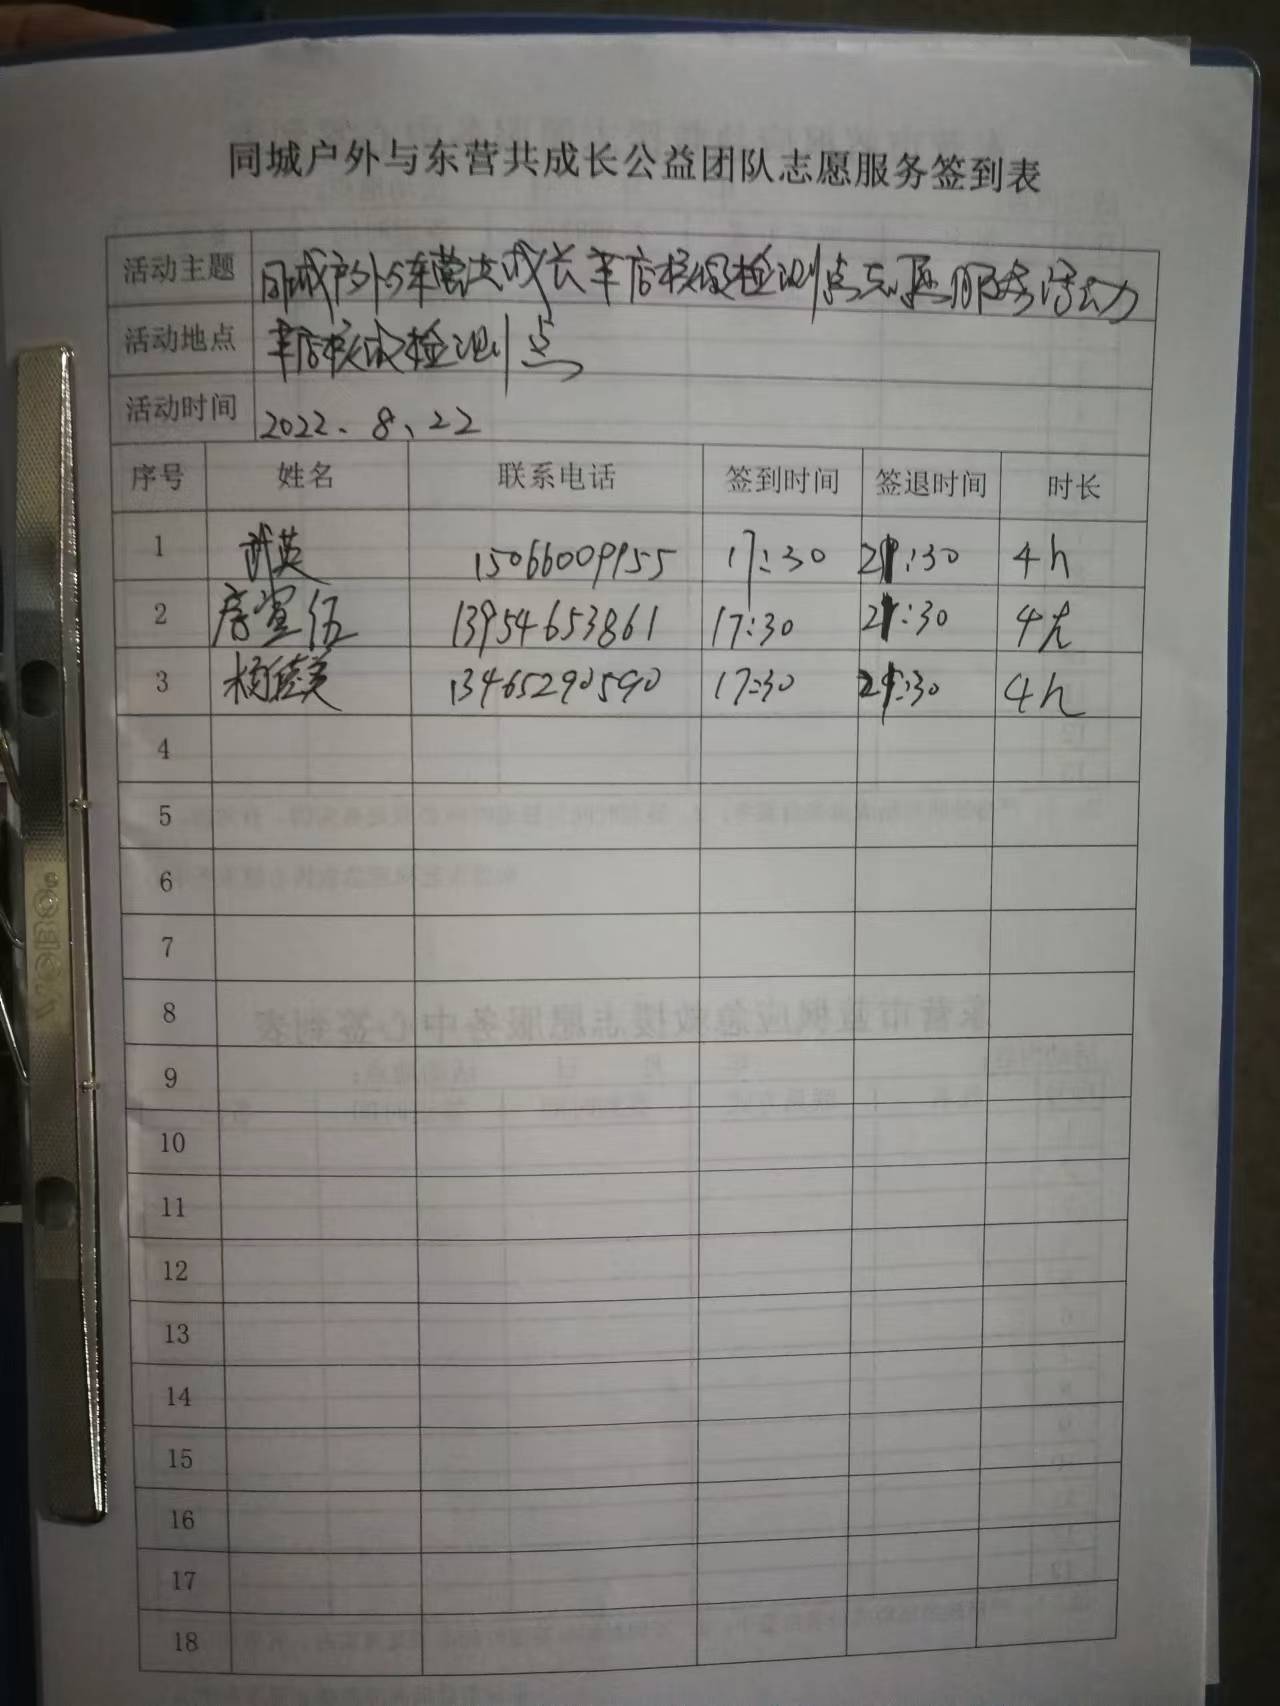 同城户外与东营共成长公益团队志愿服务签到表
活动主题 同城户外与东营共成长辛店核酸检测点志愿服务活动
活动地点 辛店核酸检测点
活动时间 2022、8、22
序号 姓名 联系电话 签到时间 签退时间 时长
1 武英 15066009955 17:30 21:30 4h
2 13954653861 17:30 21:30 4h
3 杨德美 13465290590 17:30 21:30 4h
4
5
6
7
8
9
10
11
12
13
14
15
16
17
18